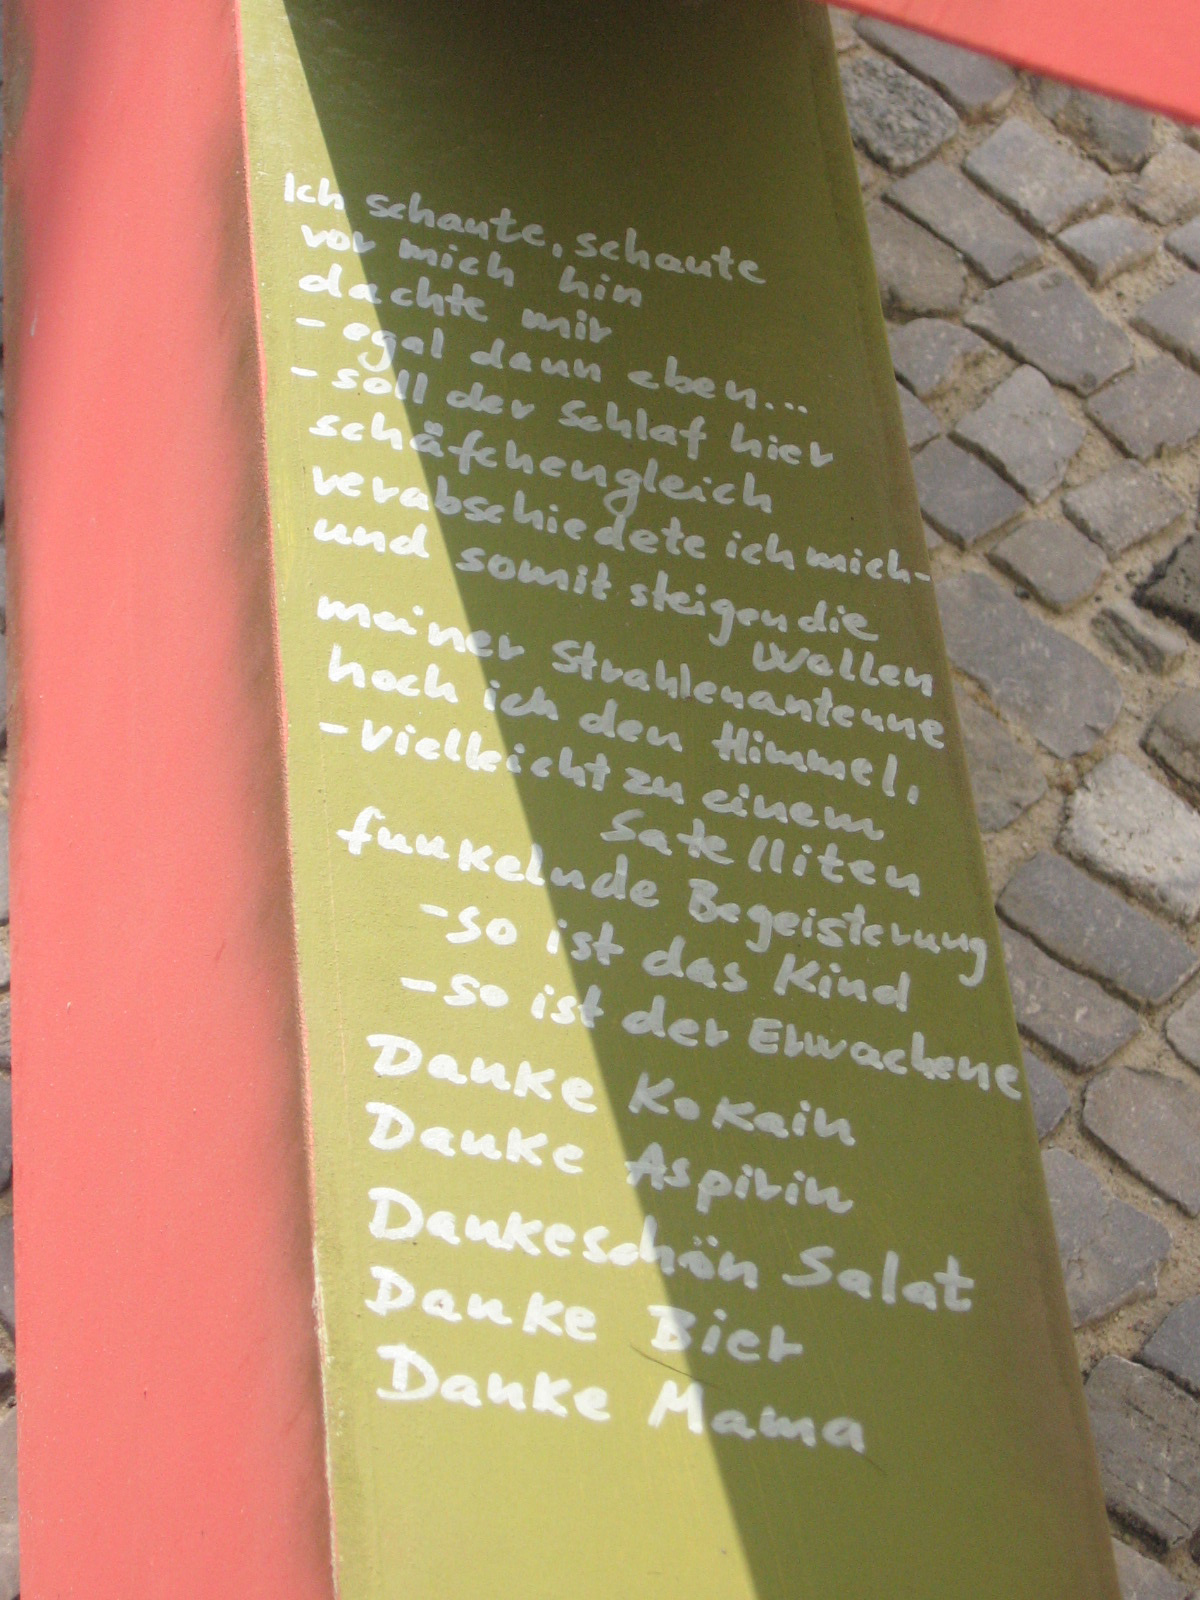 Ich schaute, schaute
vor mich hin
dachte mir
- egal dann eben...
- soll der Schlaf hier
schäfchengleich
verabschiedete ich mich-
und somit steigen die
Wellen
meiner Strahlenantenne
hoch ich den Himmel,
- vielleicht zu einem
Satelliten
funkelnde Begeisterung
- so ist das Kind
- so ist der Erwachene
Danke Kokain
Danke Aspirin
Dankeschön Salat
Danke Bier
Danke Mama